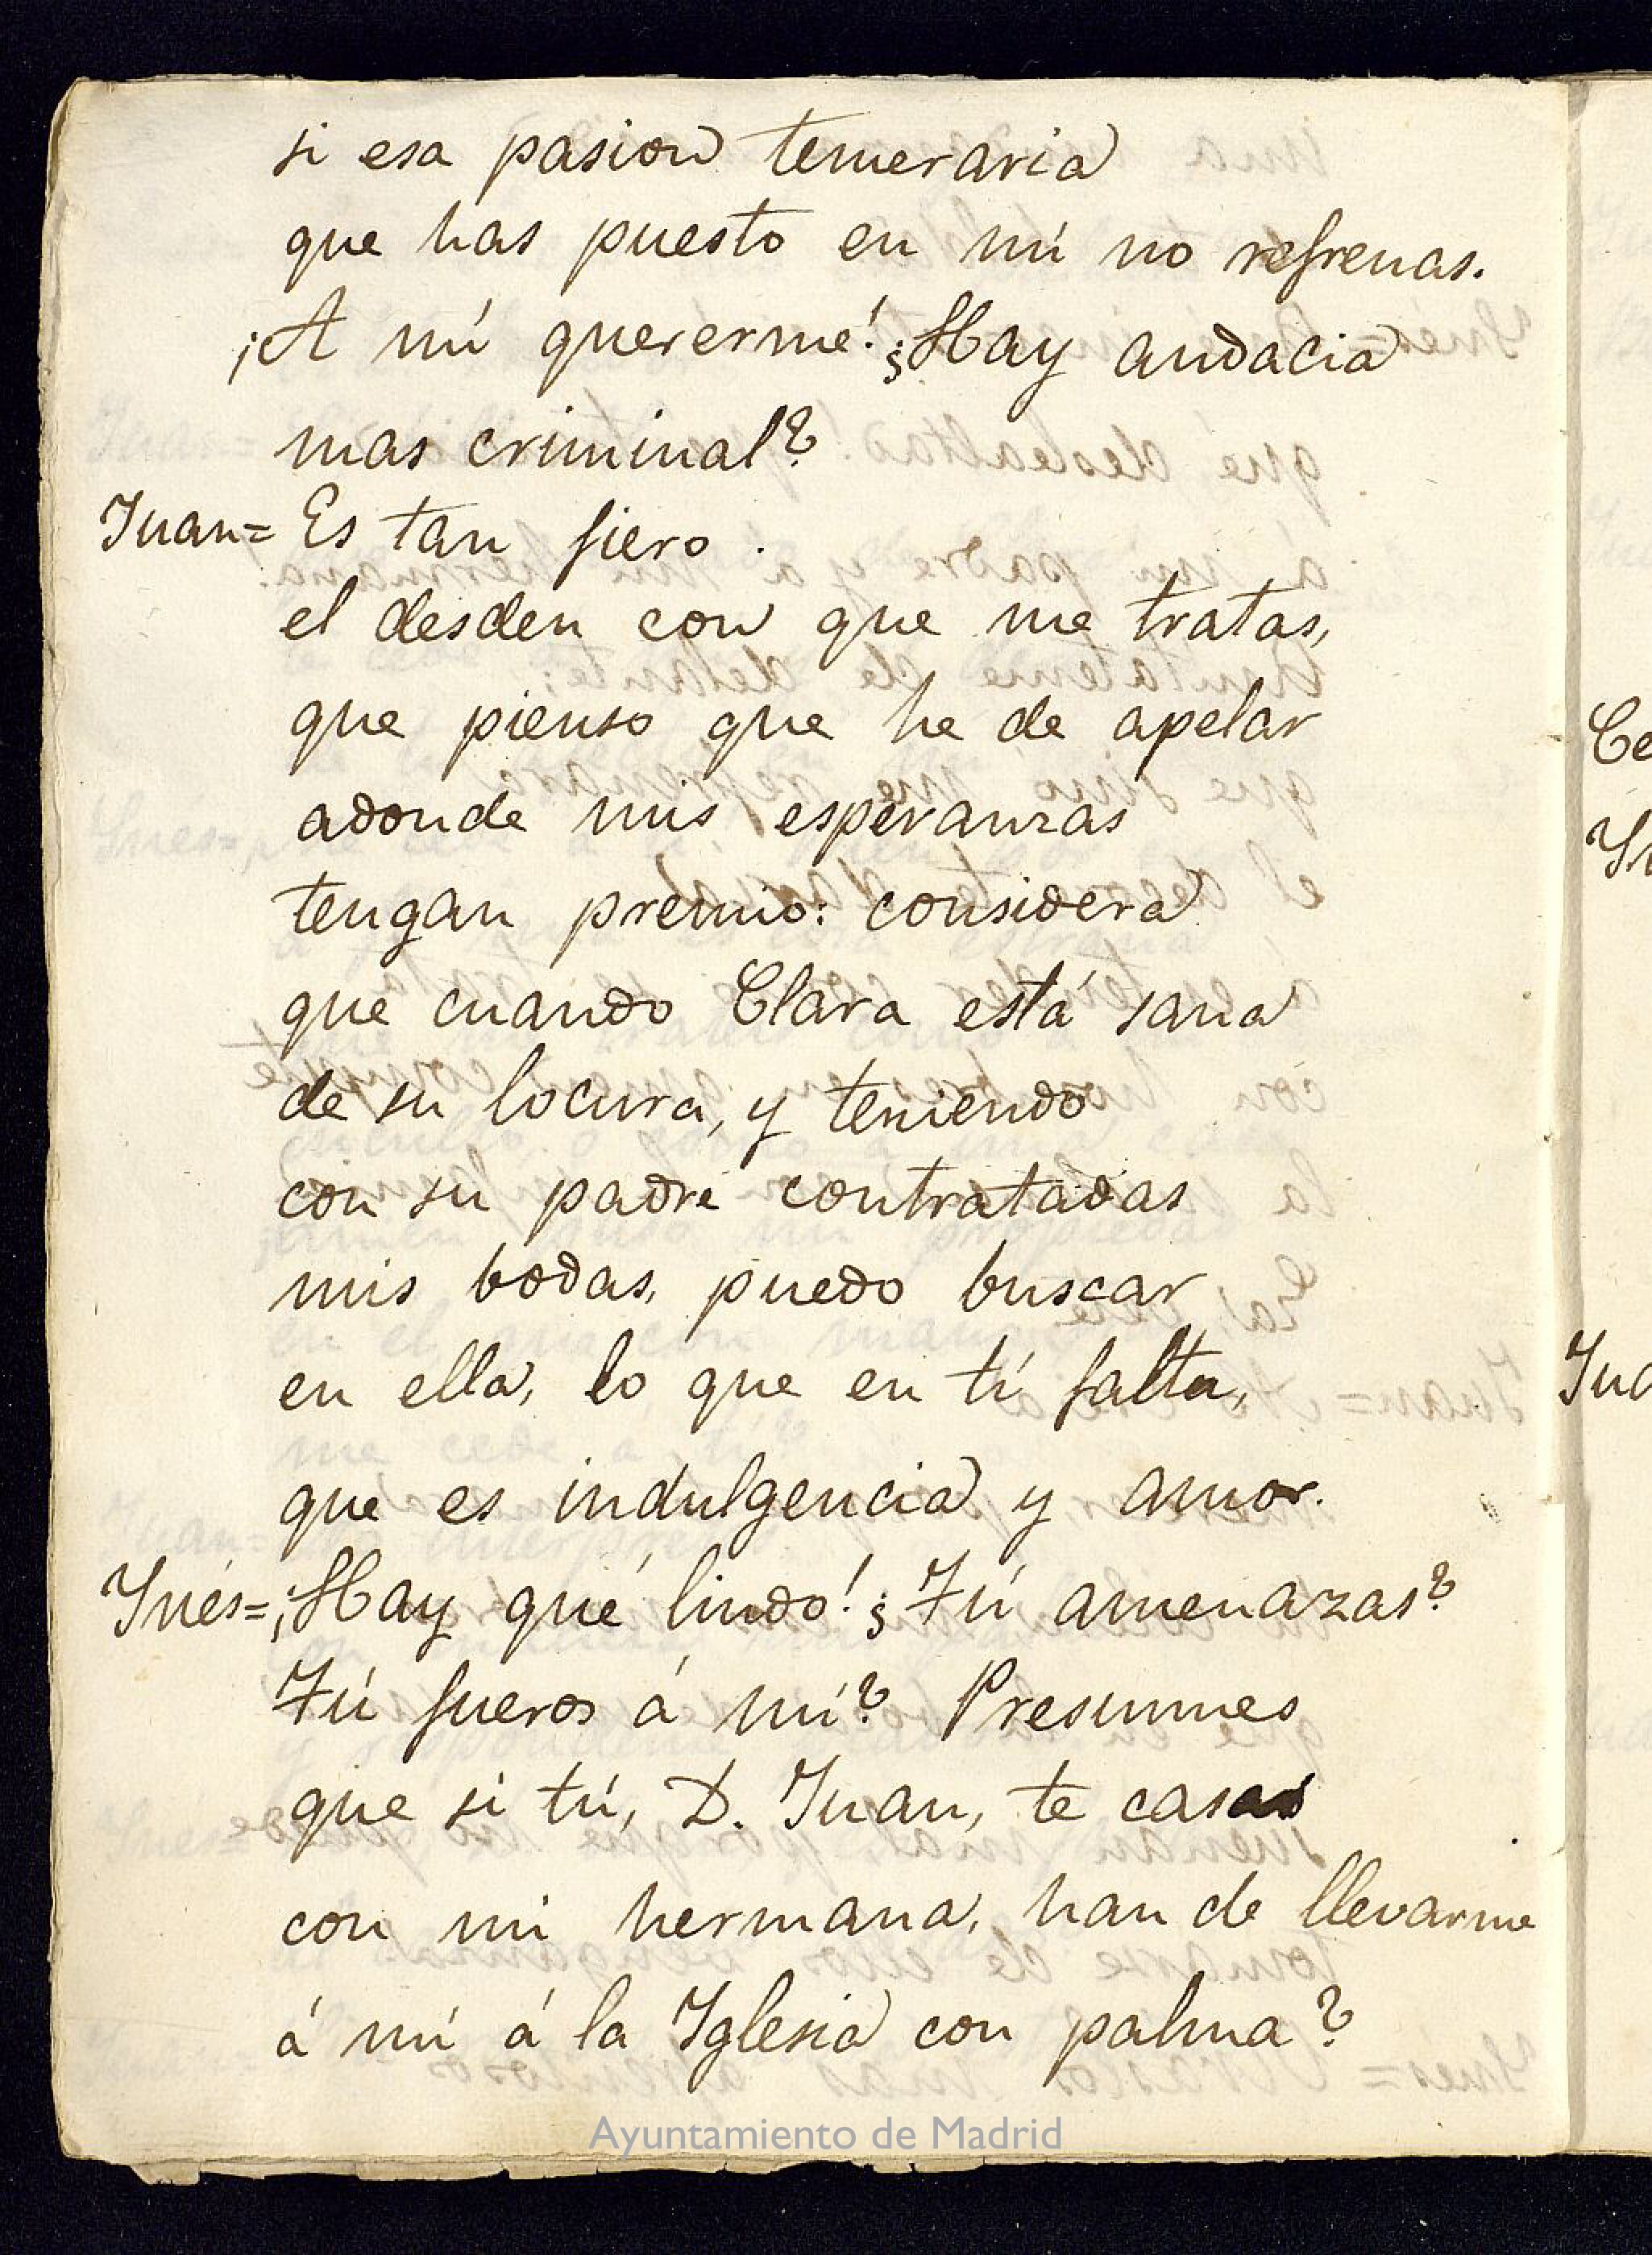 si esa pasion temeraria
que has puesto en mí no refrenas.
¡A mí quererme! ¿Hay audacia
mas criminal?
Juan= Es tan fiero
el desden con que me tratas,
que pienso que he de apelar
adonde mis esperanzas
tengan premio: considera
que cuando Clara está sana
de su locura, y teniendo
con su padre contratadas
mis bodas, puedo buscar
en ella, lo que en tí falta,
que es indulgencia y amor.
Inés= ¡Hay qué lindo! ¿Tú amenazas?
Tú fueros á mí? Presumes
que si tú, D. Juan, te casas
con mi hermana, han de llevarme
á mí á la Iglesia con palma?
Ayuntamiento de Madrid